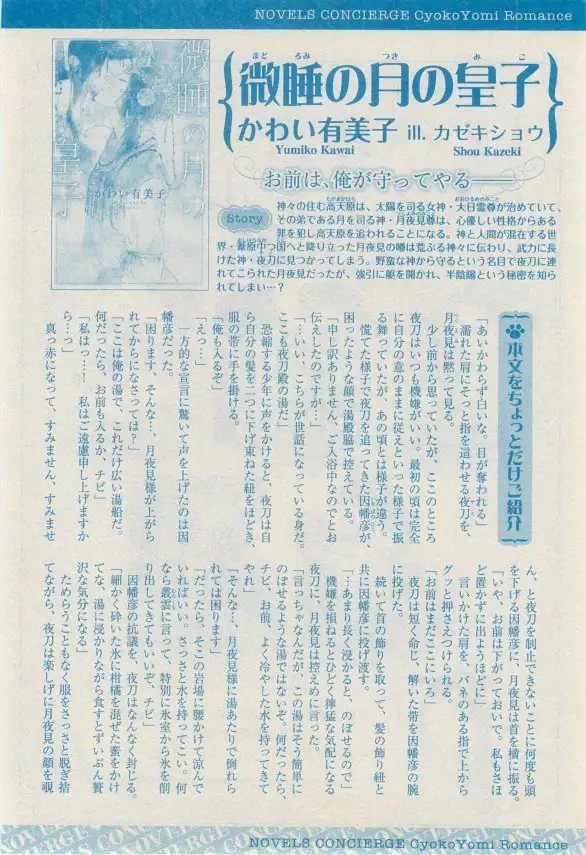 NOVELS CONCIERGE CyokoYomi Romance
微睡の月の皇子
かわい有美子
まどろみ つき みこ
微睡の月の皇子
かわい有美子 ill. カゼキショウ
Yumiko Kawai Shou Kazeki
お前は、俺が守ってやる――
Story
神々の住む高天原は、太陽を司る女神・大日霊尊が治めていて、
その弟である月を司る神・月夜見尊は、心優しい性格からある
罪を犯し高天原を追われることになる。神と人間が混在する世
界・葦原中つ国へと降り立った月夜見の噂は荒ぶる神々に伝わり、武力に長
けた神・夜刀に見つかってしまう。野蛮な神から守るという名目で夜刀に連
れてこられた月夜見だったが、強引に躯を開かれ、半陰陽という秘密を知ら
れてしまい…？
本文をちょっとだけご紹介
「あいかわらず白いな。目が奪われる」
濡れた肩にそっと指を這わせる夜刀を、
月夜見は黙って見る。
少し前から思っていたが、ここのところ
夜刀はいつも機嫌がいい。最初の頃は完全
に自分の意のままに従えといった様子で振
る舞っていたが、あの頃とは様子が違う。
慌てた様子で夜刀を追ってきた因幡彦が、
困ったような顔で湯殿脇で控えている。
「申し訳ありません、ご入浴中なのでとお
伝えしたのですが…」
「…いい、こちらが世話になっている身だ。
ここも夜刀殿の湯だ」
恐縮する少年に声をかけると、夜刀は自
ら自分の髪を二つに下げ束ねた紐をほどき、
服の帯に手を掛ける。
「俺も入るぞ」
「えっ…」
一方的な宣言に驚いて声を上げたのは因
幡彦だった。
「困ります、そんな…、月夜見様が上がら
れてからになさっては？」
「ここは俺の湯で、これだけ広い湯船だ。
何だったら、お前も入るか、チビ」
「私はっ…！ 私はご遠慮申し上げますか
ら…っ」
真っ赤になって、すみません、すみませ
ん、と夜刀を制止できないことに何度も頭
を下げる因幡彦に、月夜見は首を横に振る。
「いや、お前は下がっておいで。私もさほ
ど置かずに出ようほどに」
言いかけた肩を、バネのある指で上から
グッと押さえつけられる。
「お前はまだここにいろ」
夜刀は短く命じ、解いた帯を因幡彦の腕
に投げた。
続いて首の飾りを取って、髪の飾り紐と
共に因幡彦に投げ渡す。
「…あまり長く浸かると、のぼせるので」
機嫌を損ねるとひどく獰猛な気配になる
夜刀に、月夜見は控えめに言った。
「言っちゃなんだが、この湯はそう簡単に
のぼせるような湯ではないぞ。何だったら、
チビ、お前、よく冷やした水を持ってきて
やれ」
「そんな…、月夜見様に湯あたりで倒れら
れては困ります」
「だったら、そこの岩場に腰かけて涼んで
いればいい。さっさと水を持ってこい。何
なら叢雲に言って、特別に氷室から氷を削
り出してきてもいいぞ、チビ」
因幡彦の抗議を、夜刀はなんなく封じる。
「細かく砕いた氷に柑橘を混ぜた蜜をかけ
てな、湯に浸かりながら食すとずいぶん贅
沢な気分になる」
ためらうこともなく服をさっさと脱ぎ捨
てながら、夜刀は楽しげに月夜見の顔を覗
NOVELS CONCIERGE CyokoYomi Romance